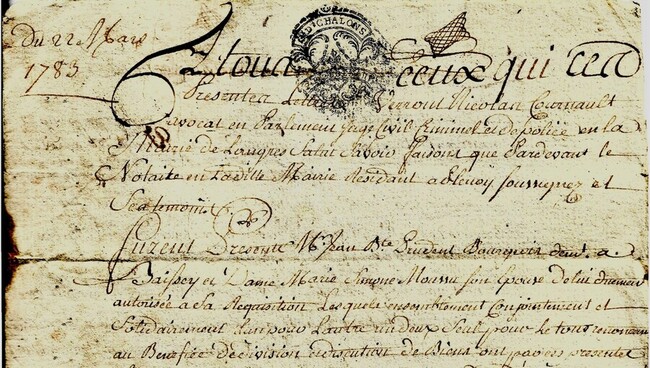 Du 22 Mars
1783
D'CHALONS
A tous ceux qui ces
Presentes Lettres Verront Nicolas
avocat en Parlement Juge Civil Criminel et de police en la
Mairie de Langres Salut Savoir faisons que Pardevant le
Notaire en Laditte Mairie Residant a soussignez et
furent Mr Jean Bte Prudent demt a
Baissey et Dame Marie Simone son Epouse de lui
autorisée a Sa Requisition Lesquels ensemblement Conjointement et
Solidairement Lun pour Lautre un deux Seul pour Le tout
au Benefice de division de Biens ont par ces presentes